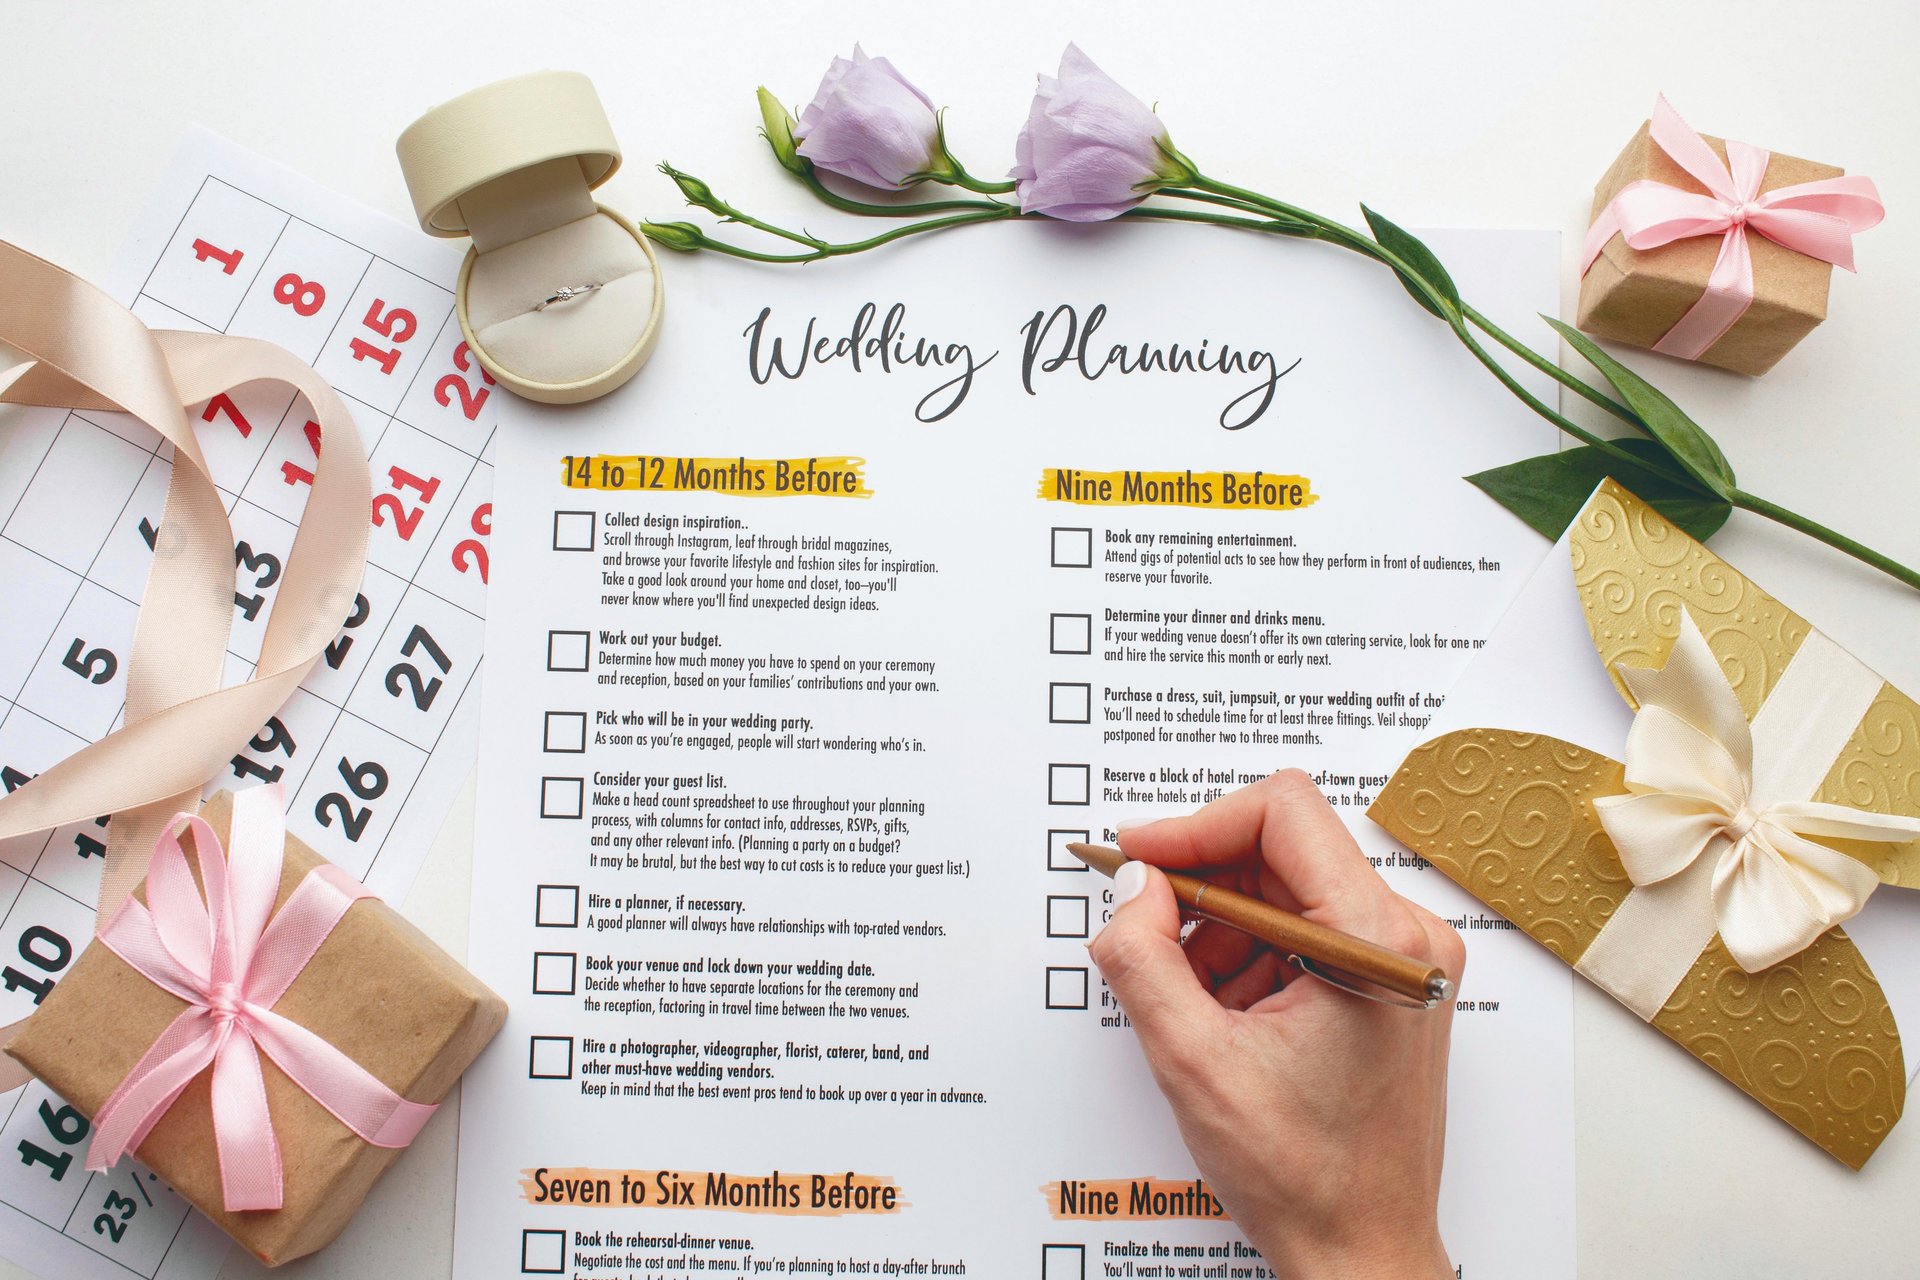 1
8
15
22
7
14
21
28
6
13
20
27
5
19
26
10
16
23/
Wedding Planning
14 to 12 Months Before
Collect design inspiration..
Scroll through Instagram, leaf through bridal magazines,
and browse your favorite lifestyle and fashion sites for inspiration.
Take a good look around your home and closet, too—you'll
never know where you'll find unexpected design ideas.
Work out your budget.
Determine how much money you have to spend on your ceremony
and reception, based on your families' contributions and your own.
Pick who will be in your wedding party.
As soon as you're engaged, people will start wondering who's in.
Consider your guest list.
Make a head count spreadsheet to use throughout your planning
process, with columns for contact info, addresses, RSVPs, gifts,
and any other relevant info. (Planning a party on a budget?
It may be brutal, but the best way to cut costs is to reduce your guest list.)
Hire a planner, if necessary.
A good planner will always have relationships with top-rated vendors.
Book your venue and lock down your wedding date.
Decide whether to have separate locations for the ceremony and
the reception, factoring in travel time between the two venues.
Hire a photographer, videographer, florist, caterer, band, and
other must-have wedding vendors.
Keep in mind that the best event pros tend to book up over a year in advance.
Seven to Six Months Before
Book the rehearsal-dinner venue.
Negotiate the cost and the menu. If you're planning to host a day-after brunch
Nine Months Before
Book any remaining entertainment.
Attend gigs of potential acts to see how they perform in front of audiences, then
reserve your favorite.
Determine your dinner and drinks menu.
If your wedding venue doesn't offer its own catering service, look for one now
and hire the service this month or early next.
Purchase a dress, suit, jumpsuit, or your wedding outfit of
You'll need to schedule time for at least three fittings. Veil
postponed for another two to three months.
Reserve a block of hotel room of-town guest
Pick three hotels at to the
of
If
one now
and
Nine Months
Finalize the menu and
You'll want to wait until now to